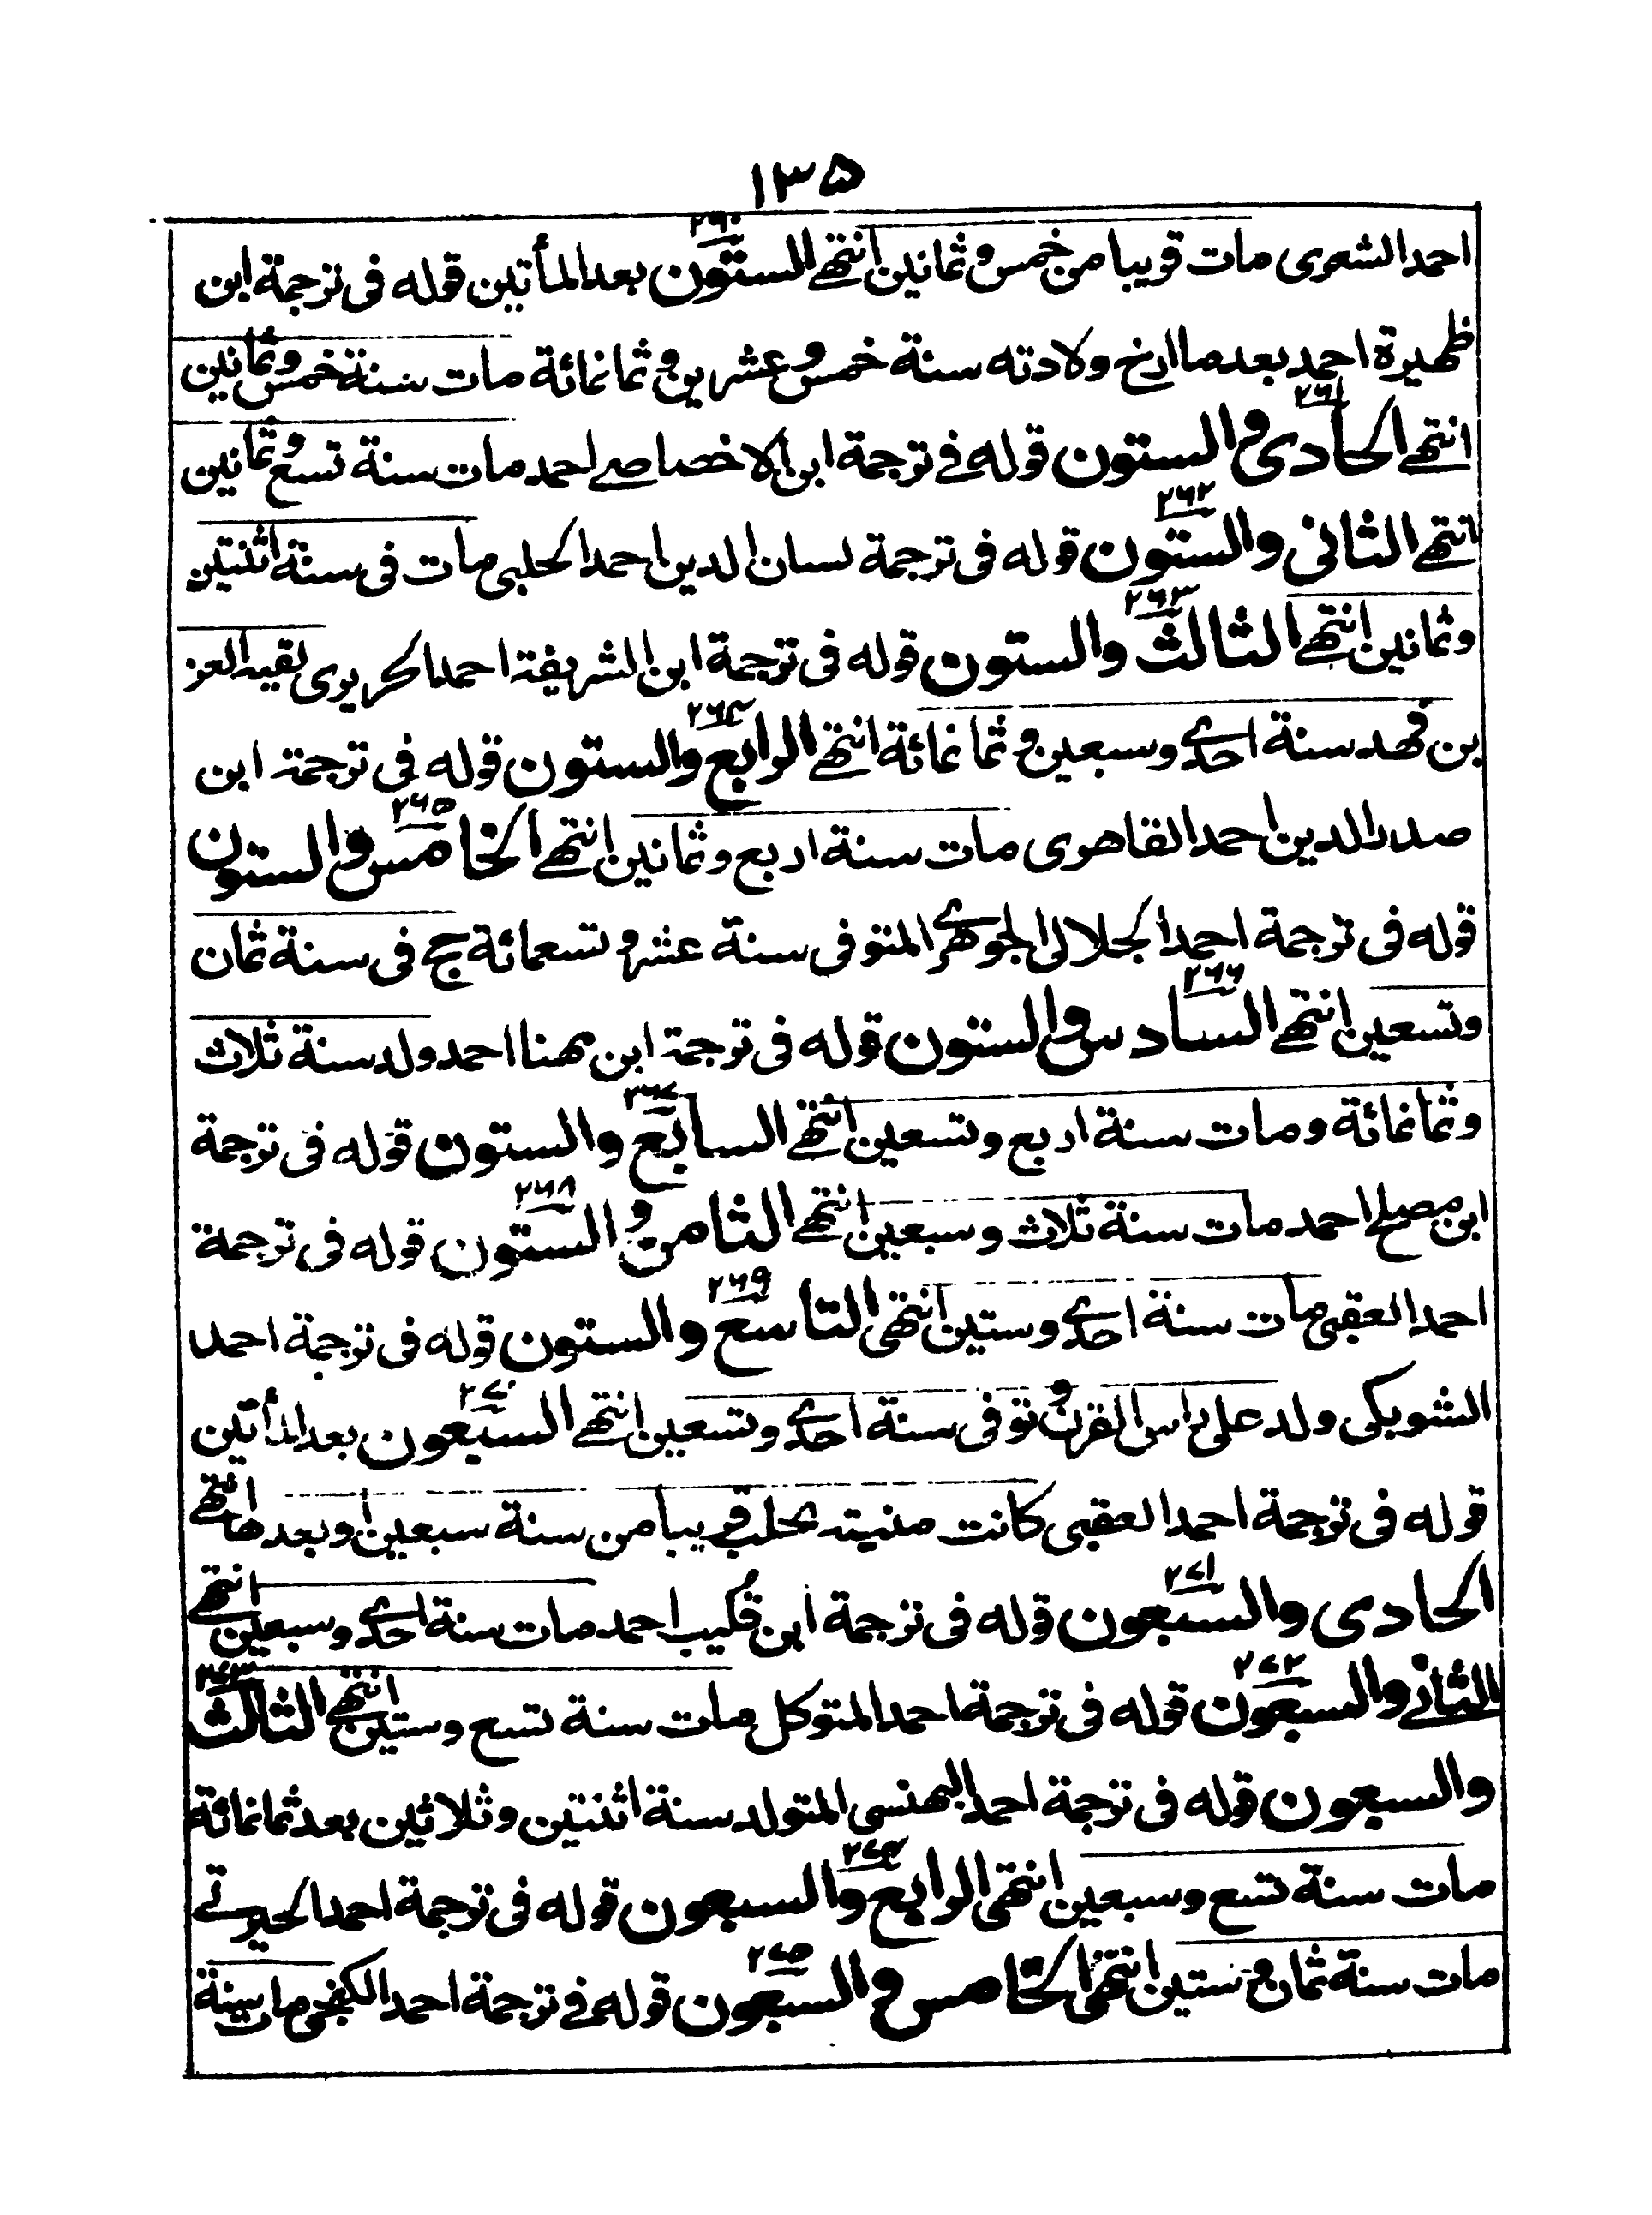 ١٣٥
احمد الشعرى مات قريبا من خمس وثمانين انتهے الستون ٢٦٠ بعد المأتين قوله فى ترجمة ابن
ظهيرة احمد بعد ما ارخ ولادته سنة خمس وعشرين وثمانمائة مات سنة خمس وثمانين
انتهے الحادى والستون ٢٦١ قوله فے ترجمة ابن الاخصاصے احمد مات سنة تسع وثمانين
انتهے الثانى والستون ٢٦٢ قوله فى ترجمة لسان الدين احمد الحلبى مات فى سنة اثنتين
وثمانين انتهے الثالث والستون ٢٦٣ قوله فى ترجمة ابن الشريفة احمد اكريرى لقيه العز
بن فهد سنة احدے وسبعين وثمانمائة انتهے الرابع والستون ٢٦٤ قوله فى ترجمة ابن
صدر الدين احمد القاهرى مات سنة اربع وثمانين انتهے الخامس والستون ٢٦٥
قوله فى ترجمة احمد الجلالى الجوهرے المتوفى سنة عشر وتسعمائة حج فى سنة ثمان
وتسعين انتهے السادس والستون ٢٦٦ قوله فى ترجمة ابن مهنا احمد ولد سنة ثلاث
وثمانمائة ومات سنة اربع وتسعين انتهے السابع والستون ٢٦٧ قوله فى ترجمة
ابن مصلح احمد مات سنة ثلاث وسبعين انتهے الثامن والستون ٢٦٨ قوله فى ترجمة
احمد العقبى مات سنة احدے وستين انتهى التاسع والستون ٢٦٩ قوله فى ترجمة احمد
الشوبكى ولد على راس القرن وتوفى سنة احدے وتسعين انتهے السبعون ٢٧٠ بعد المأتين
قوله فى ترجمة احمد العقبى كانت منيته بحلب قريبا من سنة سبعين او بعدها انتهے
الحادى والسبعون ٢٧١ قوله فى ترجمة ابن قليب احمد مات سنة احدے وسبعين انتهے
الثانے والسبعون ٢٧٢ قوله فى ترجمة احمد المتوكل مات سنة تسع وستين انتهے الثالث ٢٧٣
والسبعون قوله فى ترجمة احمد البهنسى المتولد سنة اثنتين وثلاثين بعد ثمانمائة
مات سنة تسع وسبعين انتهى الرابع والسبعون ٢٧٤ قوله فى ترجمة احمد الحيرتے
مات سنة ثمان وستين انتهى الخامس والسبعون ٢٧٥ قوله فے ترجمة احمد مات سنة